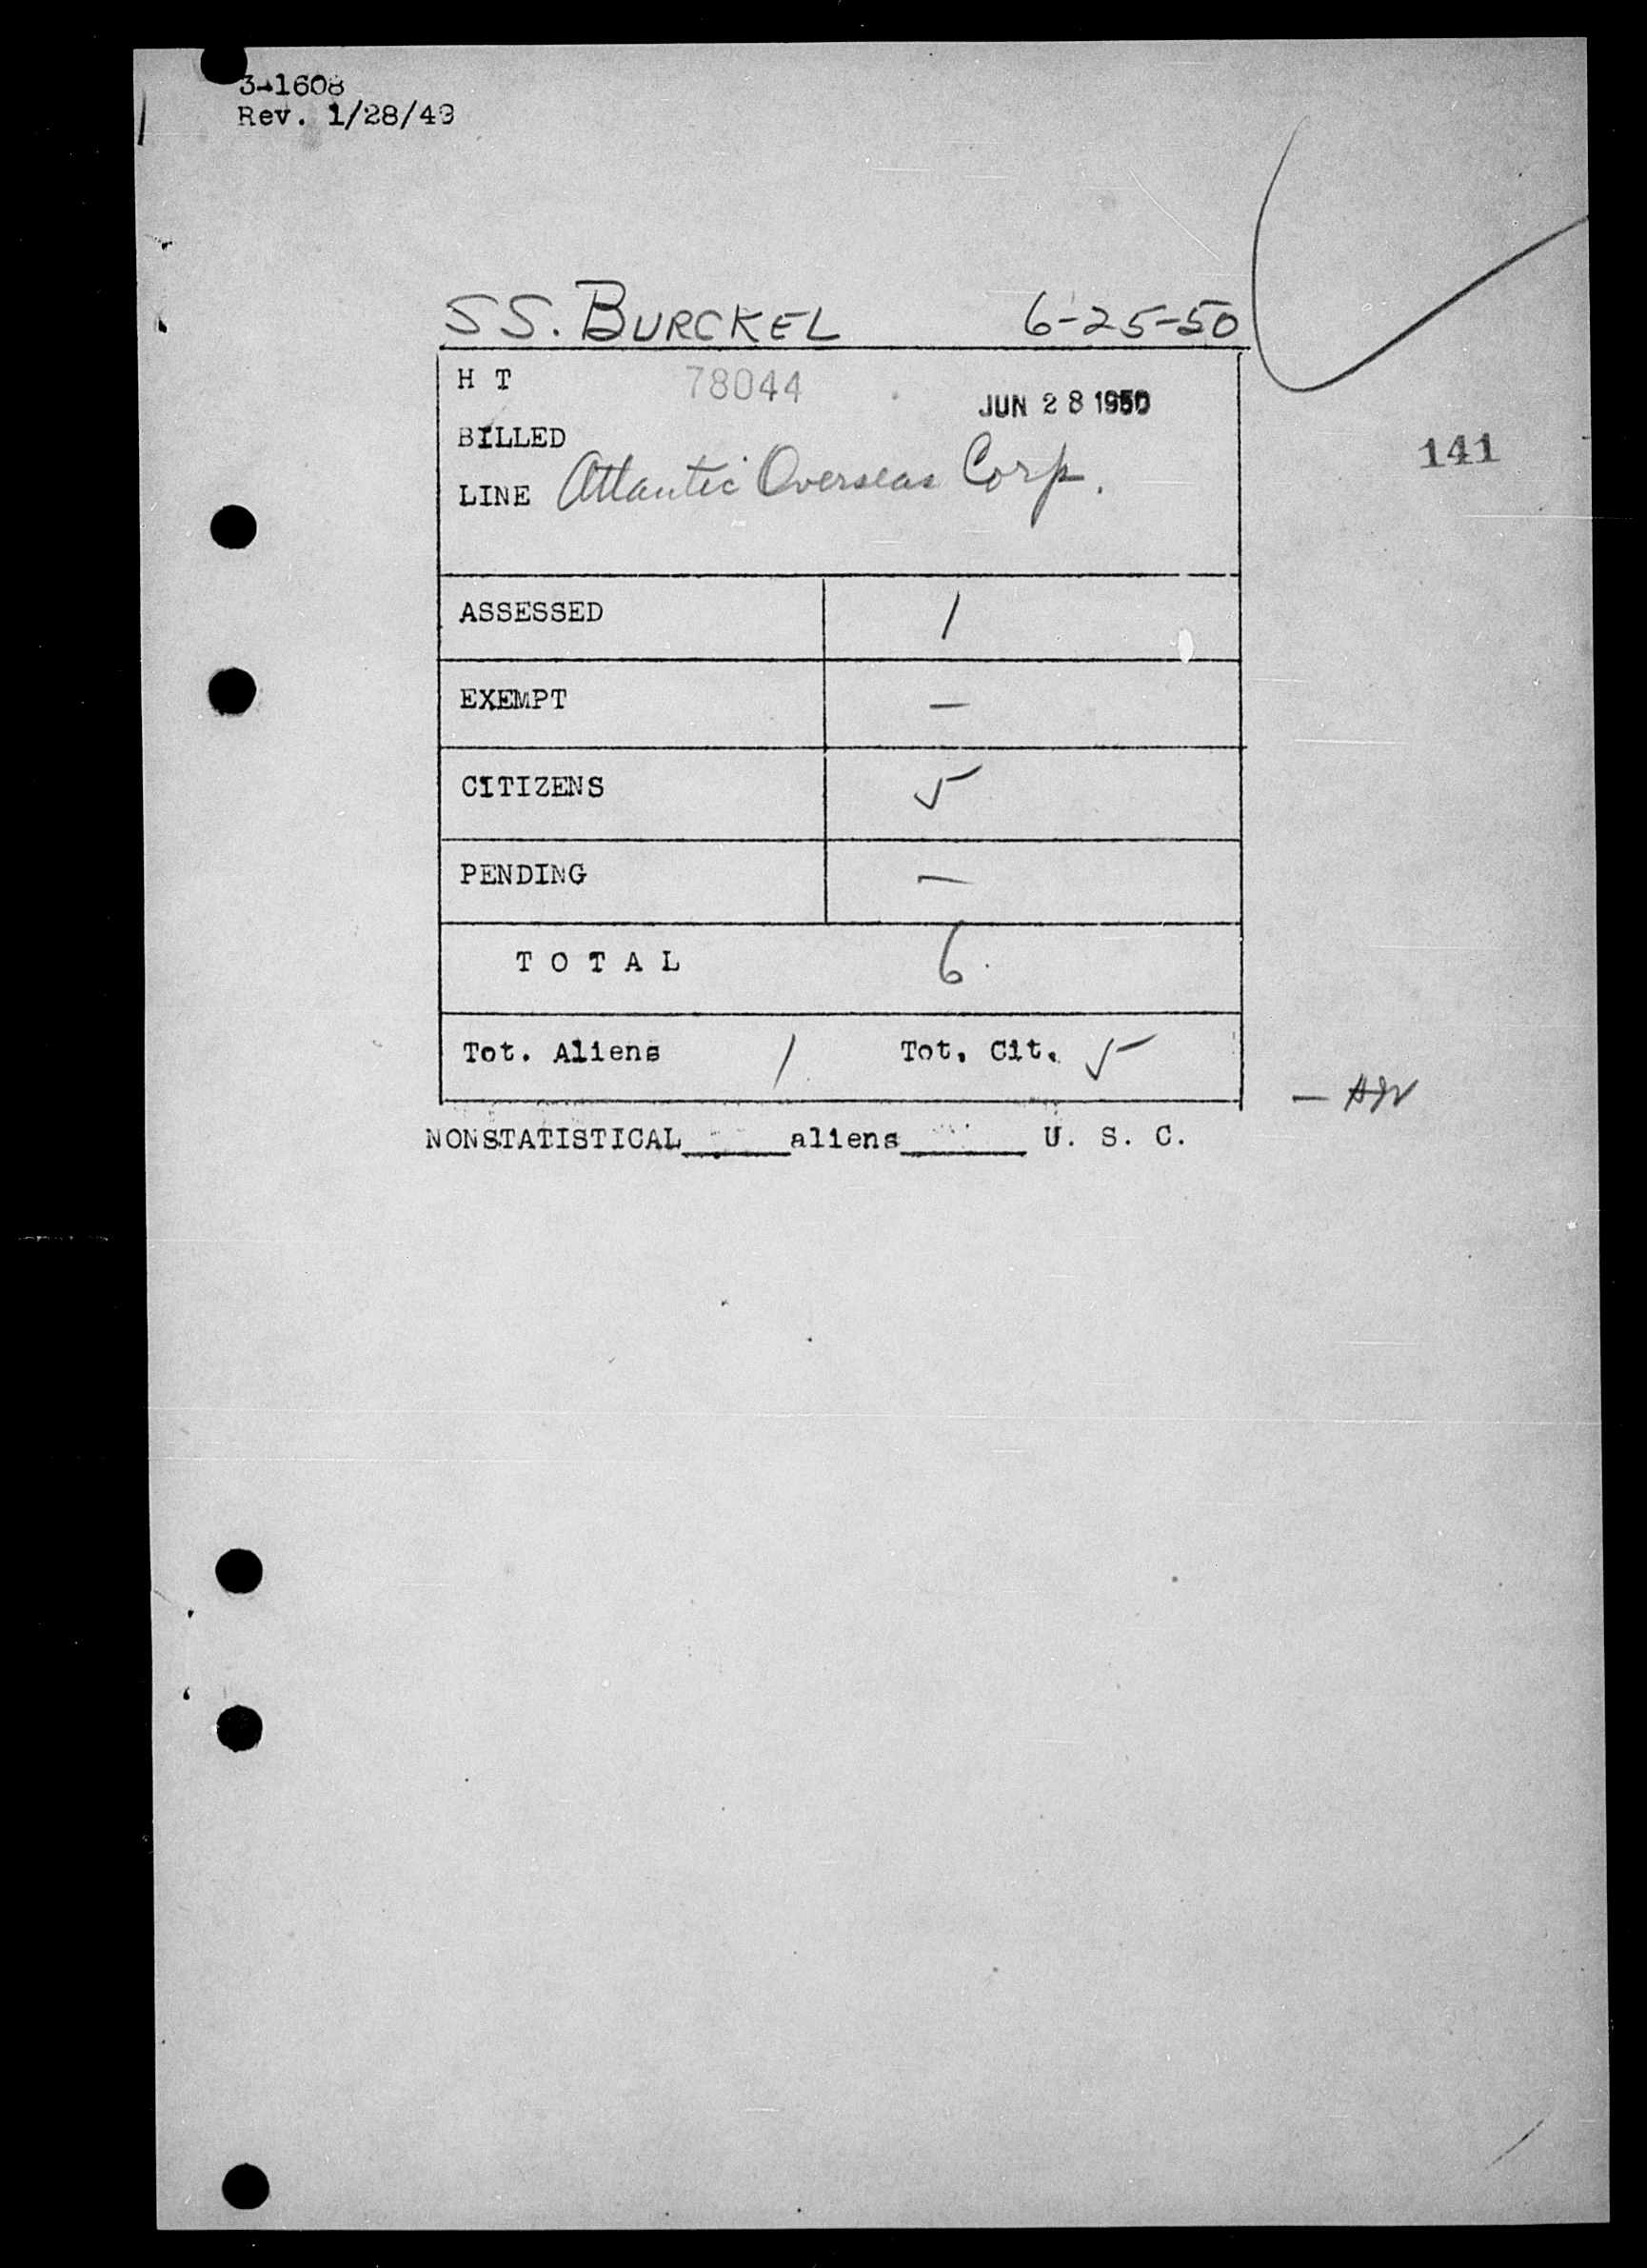 3-1608
Rev. 1/28/49
SS. BURCKEL 6-25-50
H T 78044
JUN 28 1950
BILLED
141
LINE Atlantic Overseas Corp.
ASSESSED 1
EXEMPT —
CITIZENS 5
PENDING —
TOTAL 6
Tot. Aliens 1 Tot. Cit. 5
NONSTATISTICAL______aliens_______ U. S. C.